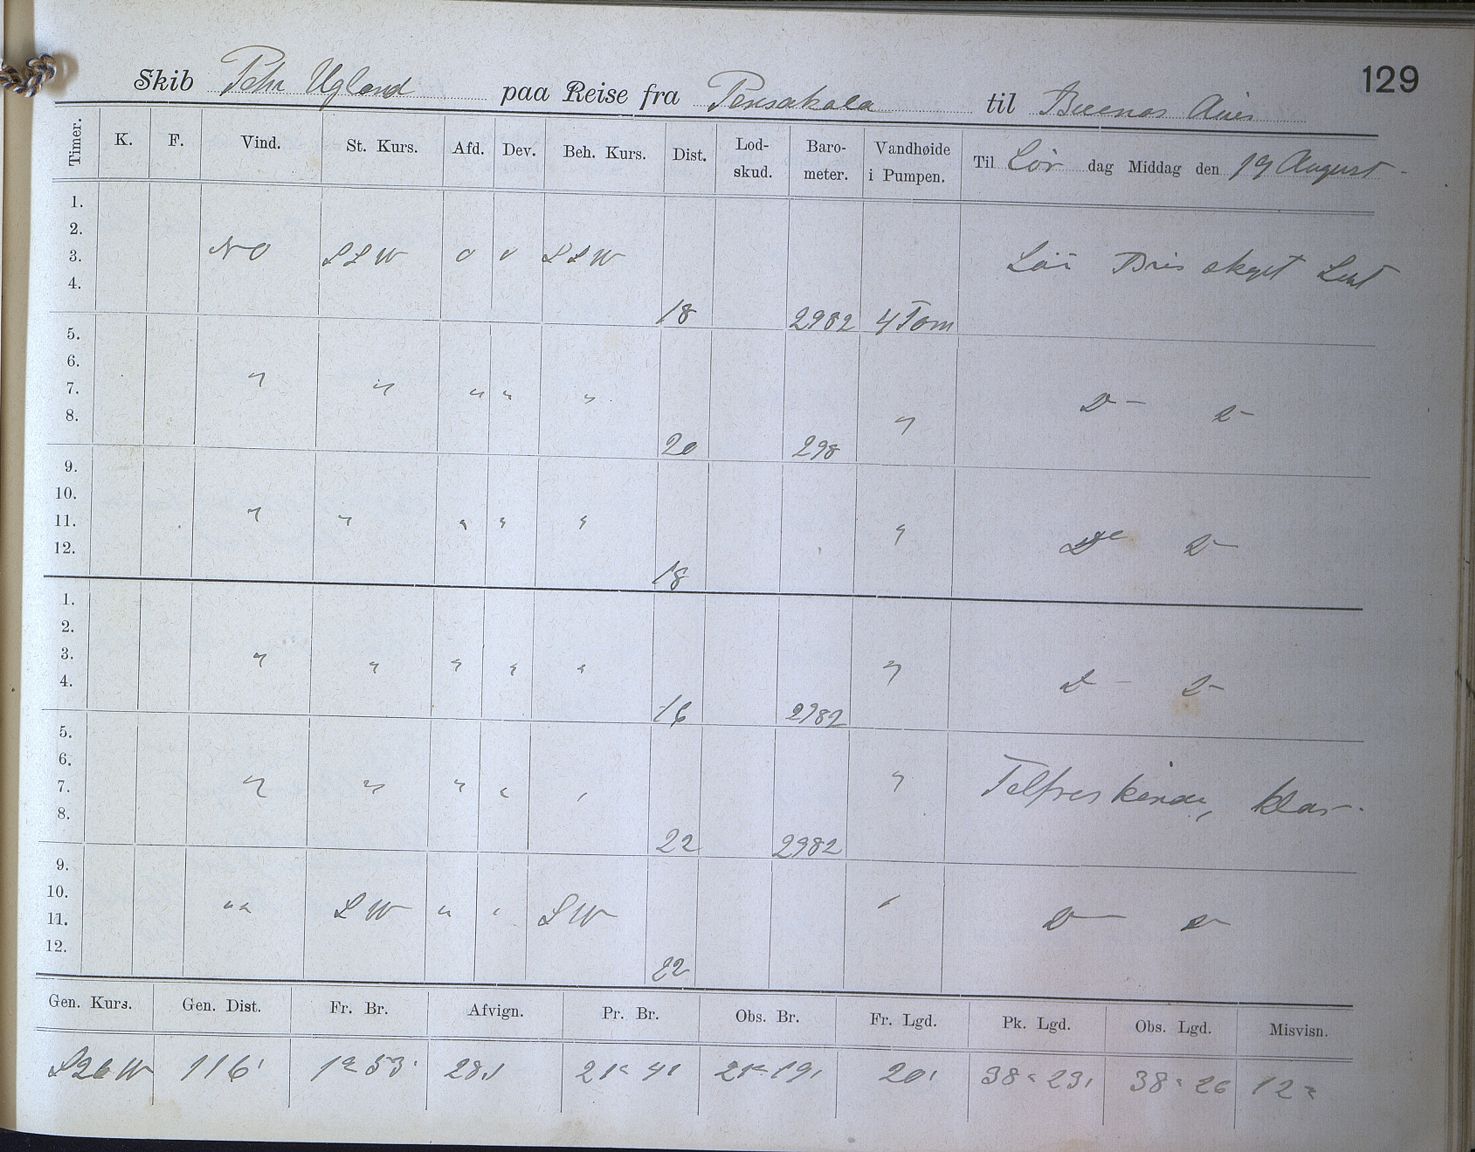 129
Skib Pehr Ugland paa Reise fra Pensakola til Buenos Aires
Timer. K. F. Vind. St. Kurs. Afd. Dev. Beh. Kurs. Dist. Lod-skud. Baro-meter. Vandhøide i Pumpen. Til Lør dag Middag den 19 August
1.
2.
3. NO SSW 0 0 SSW Lør Bris skyet Luft
4. 18 2982 4 Tom
5.
6.
7. " " " " " " D— D—
8. 20 298
9.
10.
11. " " " " " " D—
12. 18
1.
2.
3. " " " " " " D— D—
4. 16 2982
5.
6.
7. " " " " " klar
8. 22 2982
9.
10.
11. " SW " " SW " D— D—
12. 22
Gen. Kurs. Gen. Dist. Fr. Br. Afvign. Pr. Br. Obs. Br. Fr. Lgd. Pk. Lgd. Obs. Lgd. Misvisn.
S26W 116' 1° 53' 28' 21° 41 21° 19' 20' 38° 23' 38° 26 12°